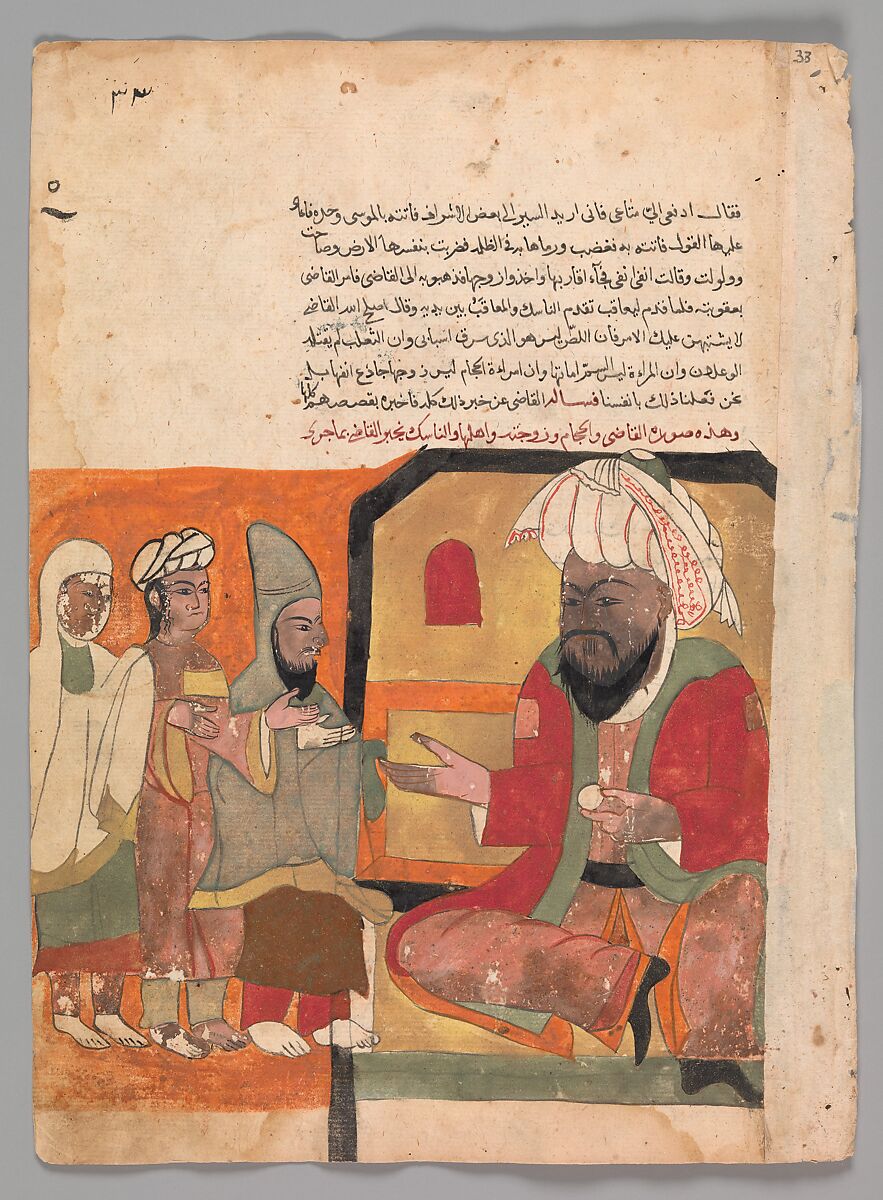 33
٣٣
فقال ادفعي اليّ متاعي فاني اريد السير الى بعض الاشراف فاتته بالموسى وحده فاعاد
عليها القول فاتته به فغضب ورماها به في الظلمه فضربت بنفسها الارض وصاحت
وولولت وقالت انفي انفي فجآء اقاربها واخذوا زوجها فذهبو به الى القاضي فامر القاضي
بعقوبته فلما قدم ليعاقب تقدم الناسك والمعاقب بين يديه وقال اصلح الله القاضي
لا يشتبهن عليك الامر فان اللصّ ليس هو الذي سرق اسبابي وان الثعلب لم يقتله
الوعلان وان المراءة ليس السم اماتها وان امراءة الحجام ليس زوجها جادع انفها بل
نحن فعلنا ذلك بانفسنا فساله القاضي عن خبر ذلك كله فاخبره بقصصهم كلها
وهذه صورة القاضي والحجام وزوجته واهلها والناسك يخبر القاضي بما جرى